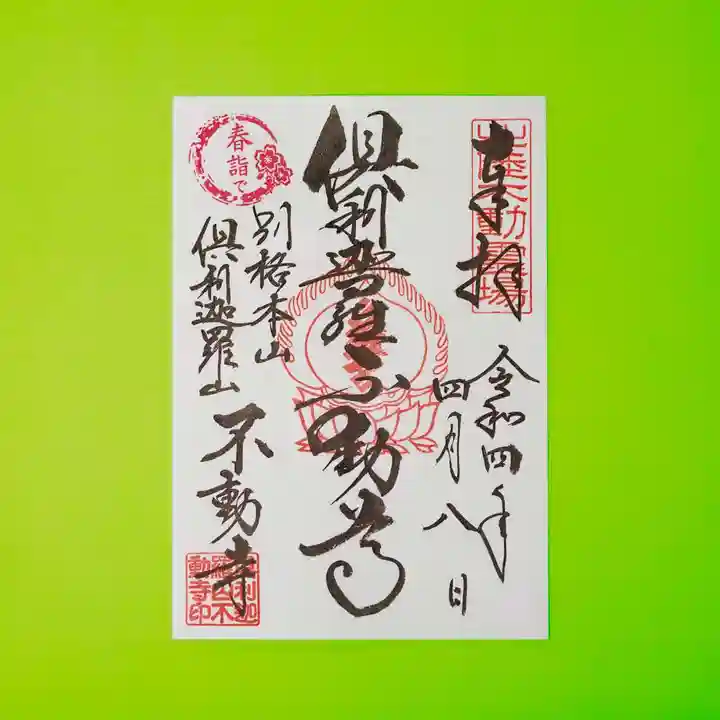 奉拝
北陸不動霊場
令和四年
四月八日
倶利迦羅不動尊
別格本山
倶利迦羅山
不動寺
春詣で
倶利迦
羅山不
動寺印